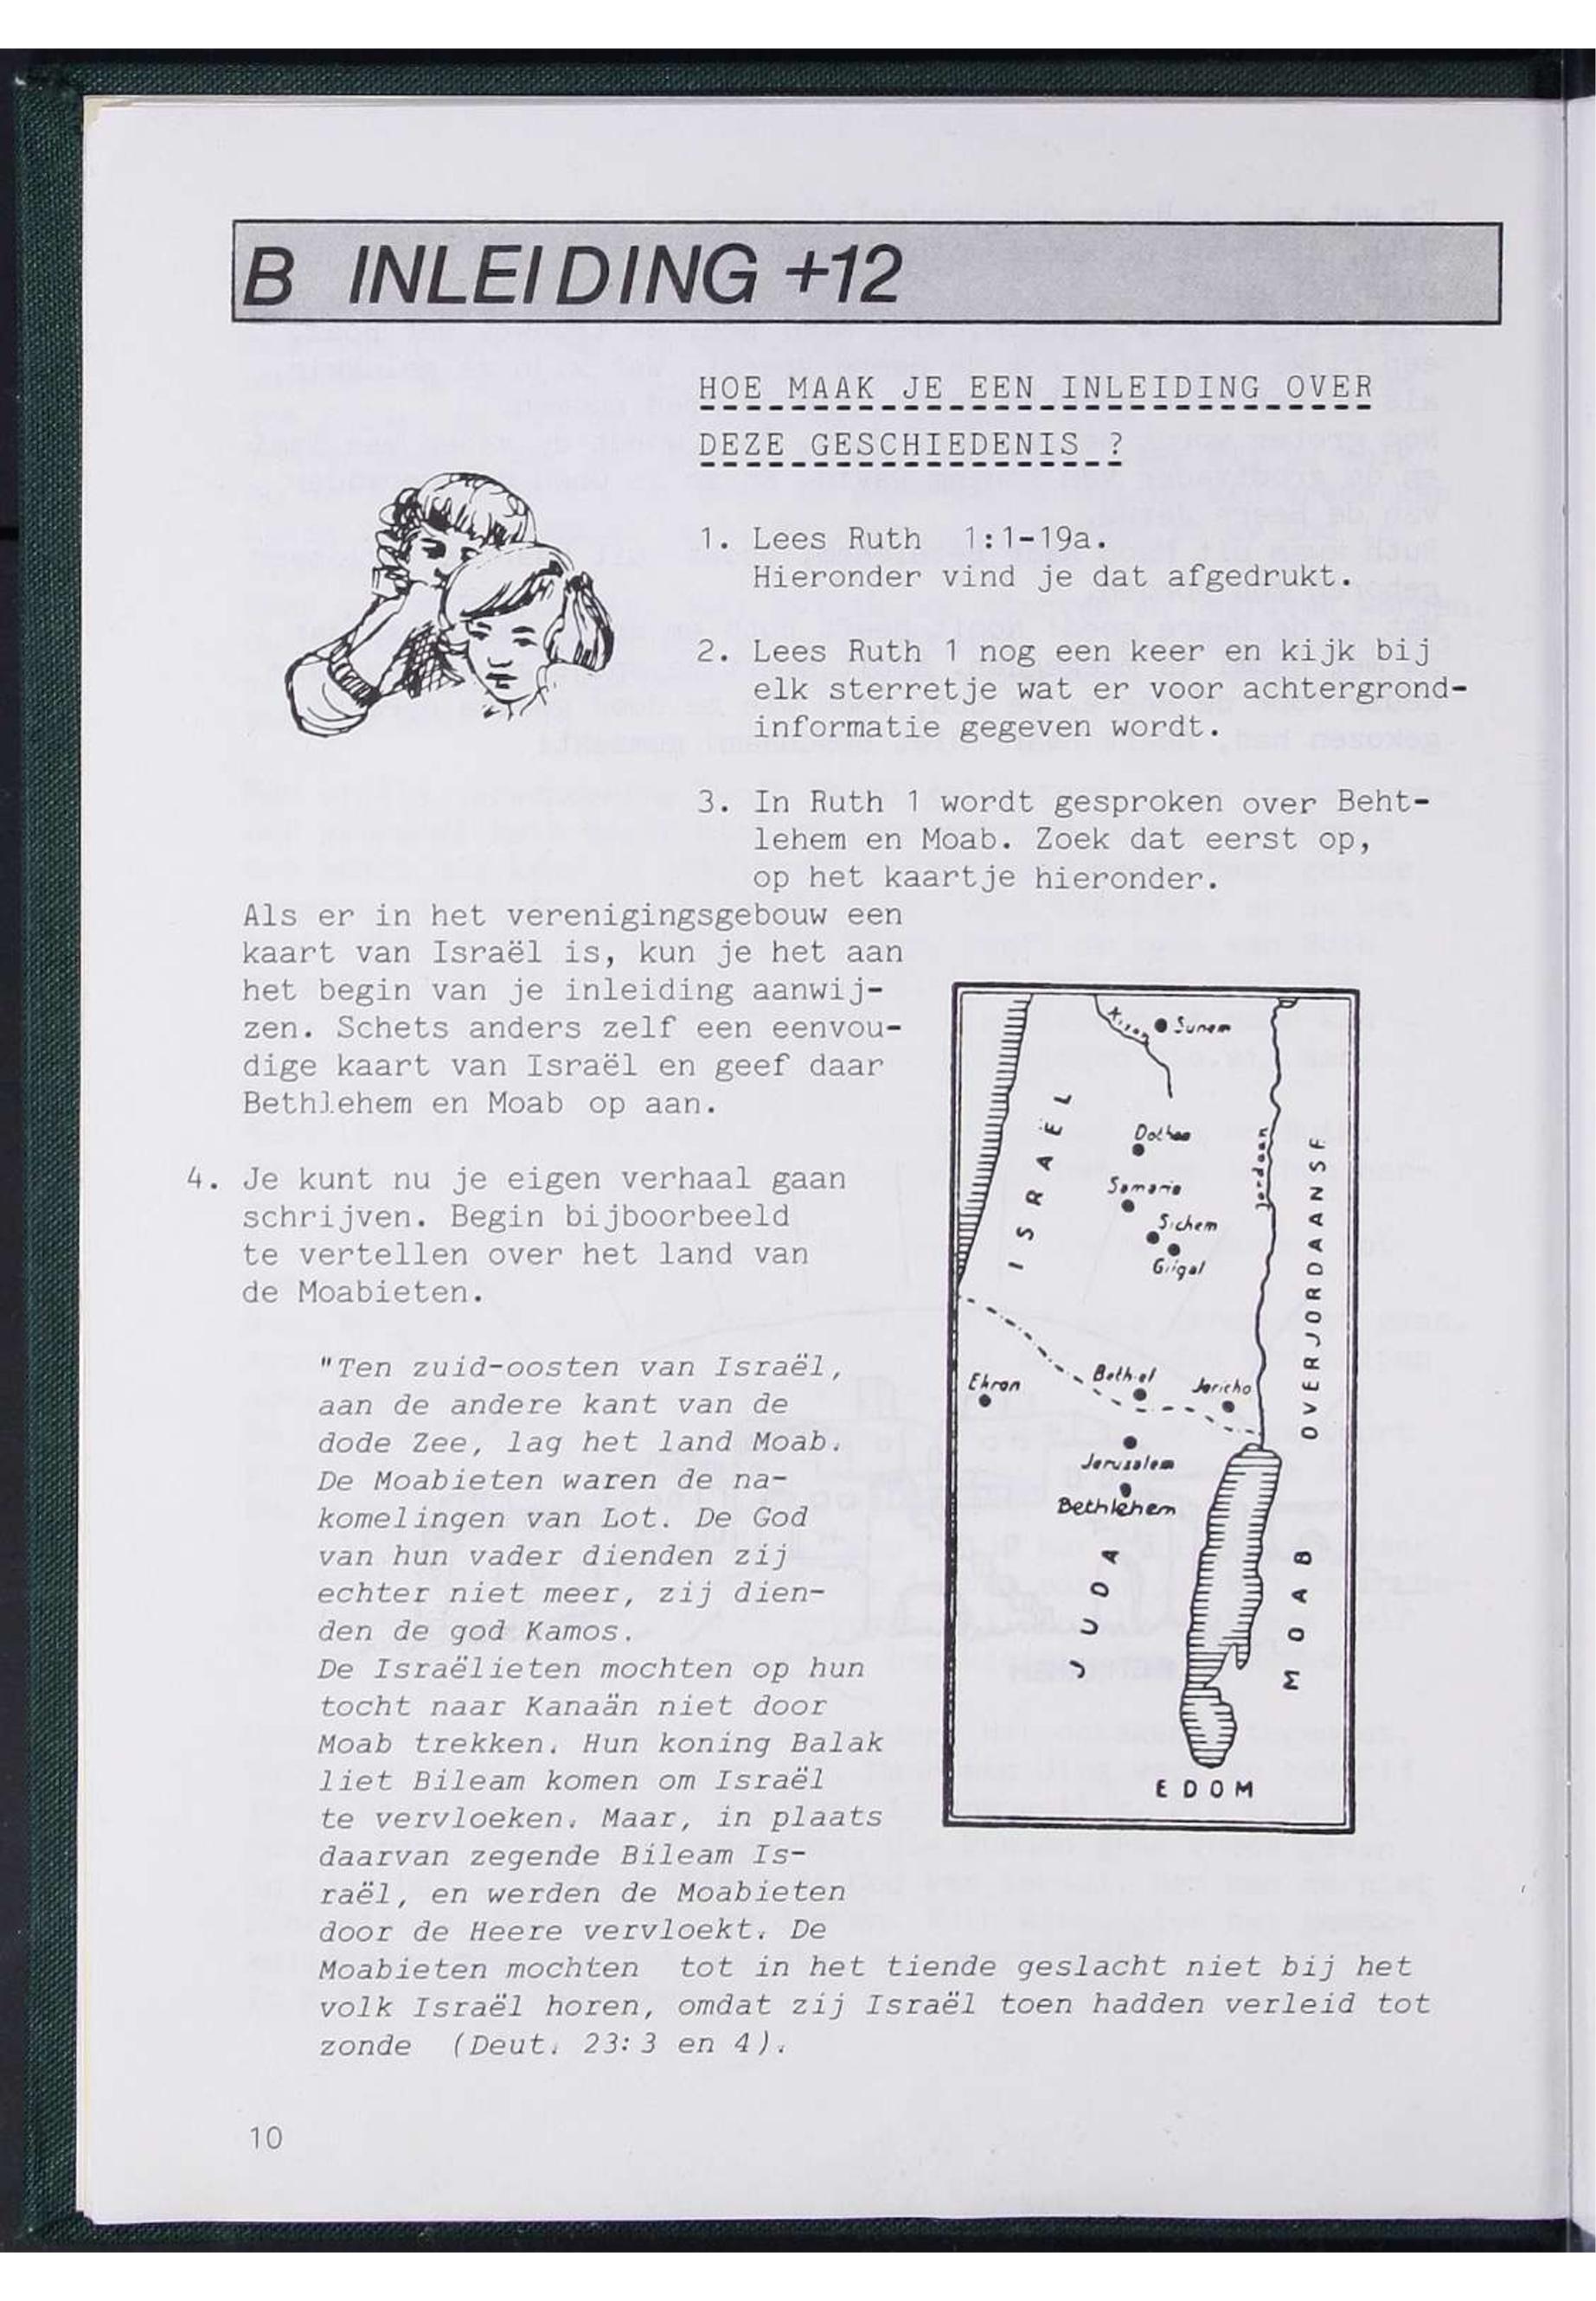 B INLEIDING +12
HOE MAAK JE EEN INLEIDING OVER
DEZE GESCHIEDENIS ?
1. Lees Ruth 1:1-19a.
Hieronder vind je dat afgedrukt.
2. Lees Ruth 1 nog een keer en kijk bij
elk sterretje wat er voor achtergrond-
informatie gegeven wordt.
3. In Ruth 1 wordt gesproken over Beht-
lehem en Moab. Zoek dat eerst op,
op het kaartje hieronder.
Als er in het verenigingsgebouw een
kaart van Israël is, kun je het aan
het begin van je inleiding aanwij-
zen. Schets anders zelf een eenvou-
dige kaart van Israël en geef daar
Bethlehem en Moab op aan.
4. Je kunt nu je eigen verhaal gaan
schrijven. Begin bijboorbeeld
te vertellen over het land van
de Moabieten.
"Ten zuid-oosten van Israël,
aan de andere kant van de
dode Zee, lag het land Moab.
De Moabieten waren de na-
komelingen van Lot. De God
van hun vader dienden zij
echter niet meer, zij dien-
den de god Kamos.
De Israëlieten mochten op hun
tocht naar Kanaän niet door
Moab trekken. Hun koning Balak
liet Bileam komen om Israël
te vervloeken. Maar, in plaats
daarvan zegende Bileam Is-
raël, en werden de Moabieten
door de Heere vervloekt. De
Moabieten mochten tot in het tiende geslacht niet bij het
volk Israël horen, omdat zij Israël toen hadden verleid tot
zonde (Deut. 23:3 en 4).
Kison
Sunem
ISRAËL
Dothan
Samaria
Sichem
Gilgal
Jordaan
OVERJORDAANSE
Ekron
Bethel
Jericho
Jerusalem
Bethlehem
JUDA
MOAB
EDOM
10